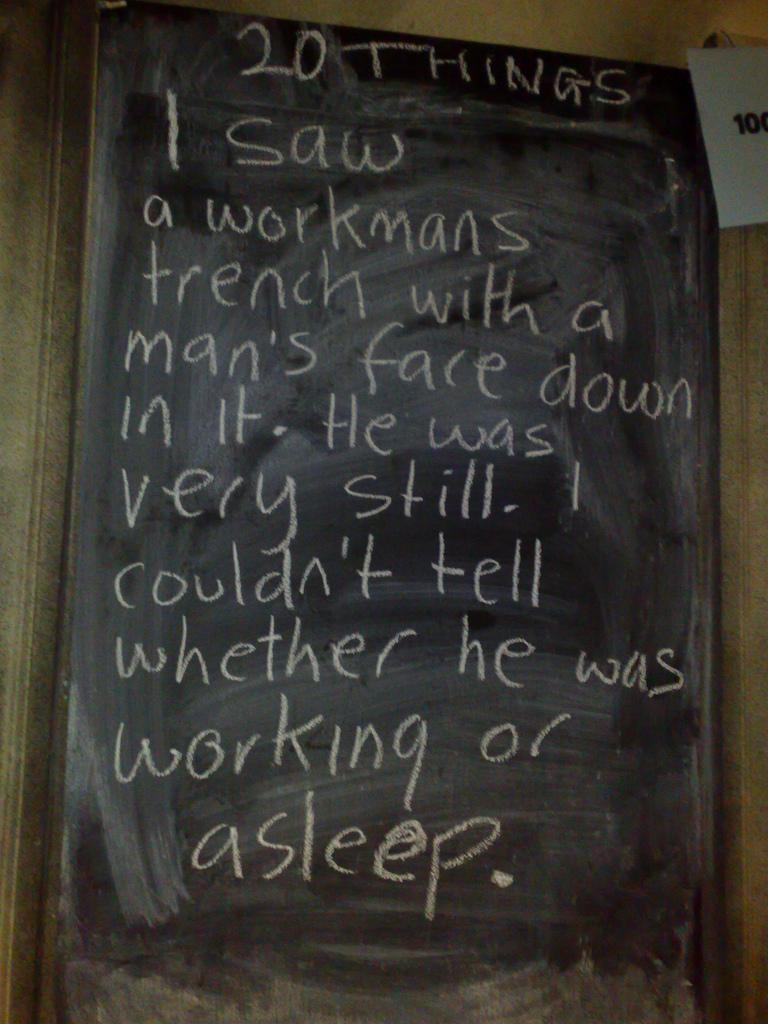 20 THINGS
I saw
a workmans
trench with a
man's face down
in it. He was
very still. I
couldn't tell
whether he was
working or
asleep.
100